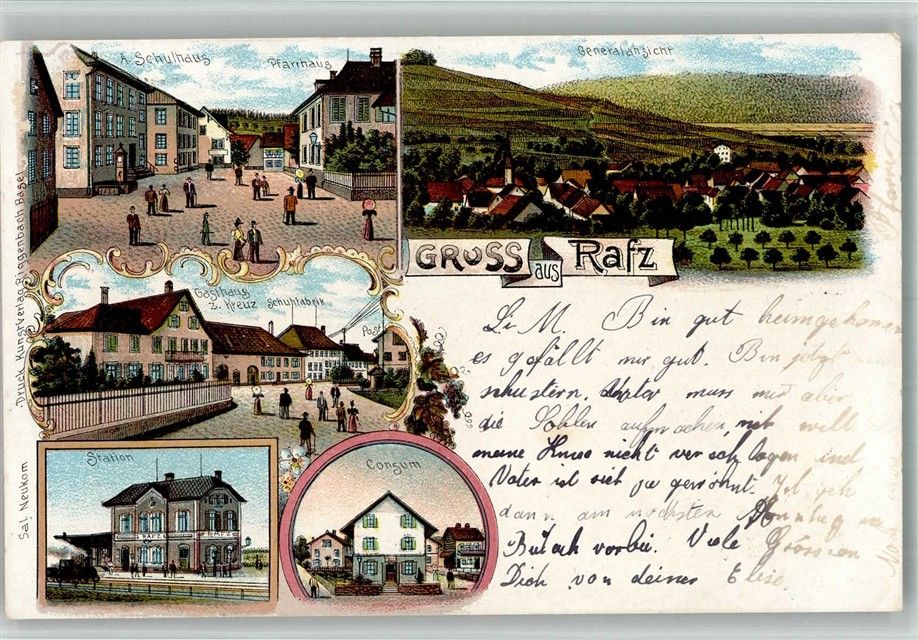 A. Schulhaus
Pfarrhaus
Generalansicht
GRUSS aus Rafz
Gasthaus
z. Kreuz
Schuhfabrik
Post
Station
RAFZ
Consum
Druck Kunstverlag Riggenbach Basel
Sal. Neukom
Li M. Bin gut heimgekommen
es gefällt mir gut. Bin jetzt
schustern, muss mir aber
die Sohlen aufmachen, will
meine nicht verschlagen ind
Vater ist sich ja gewöhnt. Ich geh
dann am nächsten Sonntag
Bülach vorbei. Viele Grüssen
Dich von deiner Elise